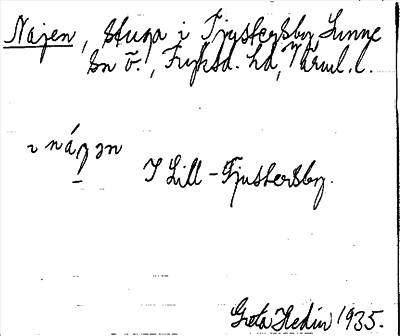 Najen, stuga i Fjustersby Sunne
sn ö., Fryksd. hd, Värml. l.
I Lill-Fjustersby.
Greta Hedin 1935.